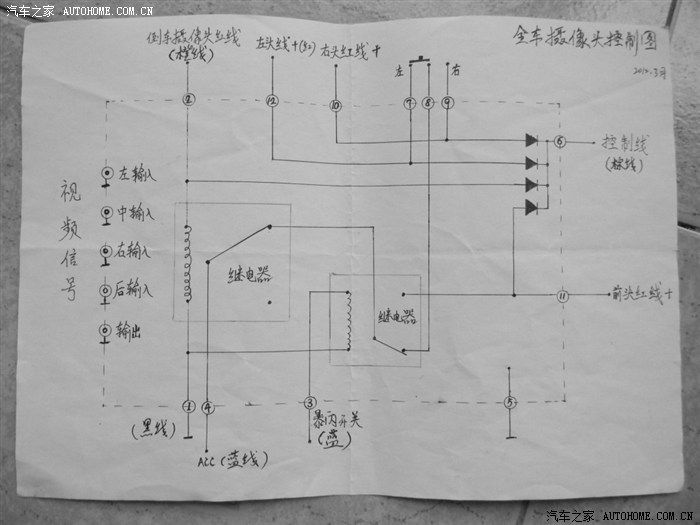 汽车之家 AUTOHOME.COM.CN
全车摄像头控制图
倒车摄像头红线
(棕线)
左头线+(红)
右头红线+
左
右
②
⑫
⑩
⑦
⑧
⑨
⑥
控制线
(棕线)
视频信号
左输入
中输入
右输入
后输入
输出
继电器
继电器
⑪
前头红线+
①
④
③
⑤
(黑线)
ACC(蓝线)
开关
(蓝)
汽车之家 AUTOHOME.COM.CN